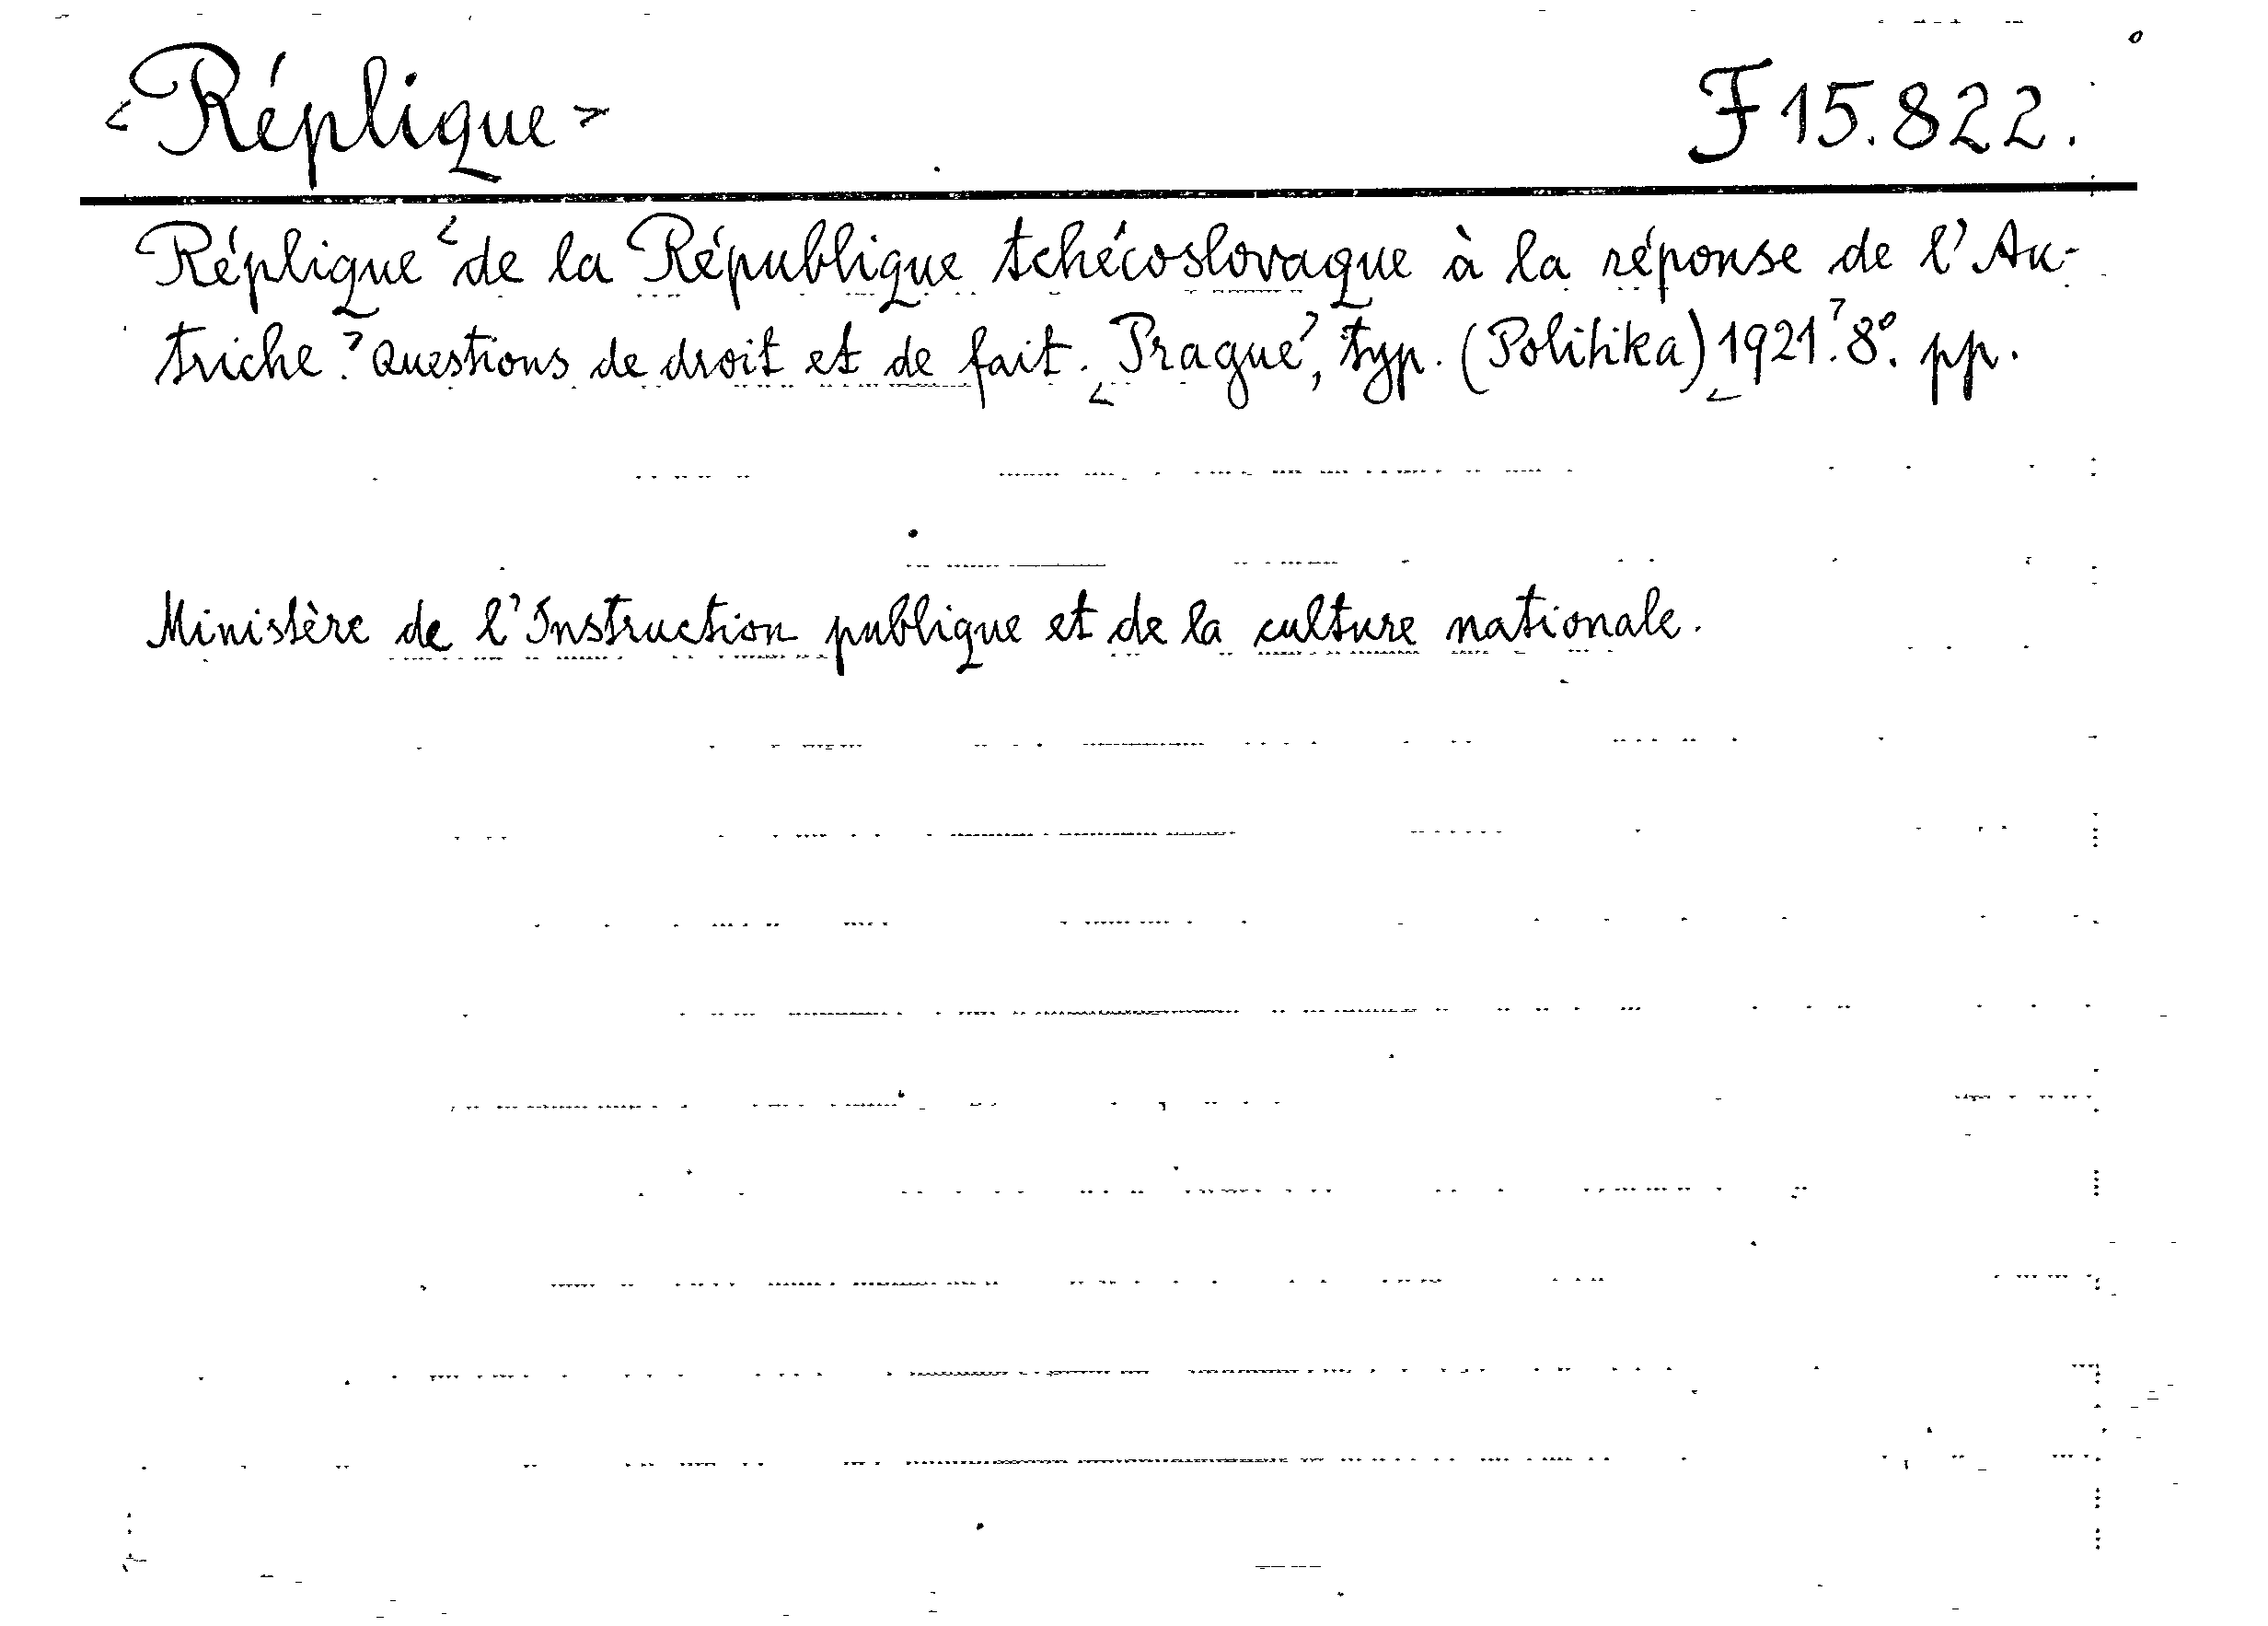 <Réplique> F 15.822.
Réplique < de la République tchécoslovaque à la réponse de l'Au-
triche.> Questions de droit et de fait. <Prague>, typ. (Politika) <1921.> 8°. pp.
Ministère de l'Instruction publique et de la culture nationale.